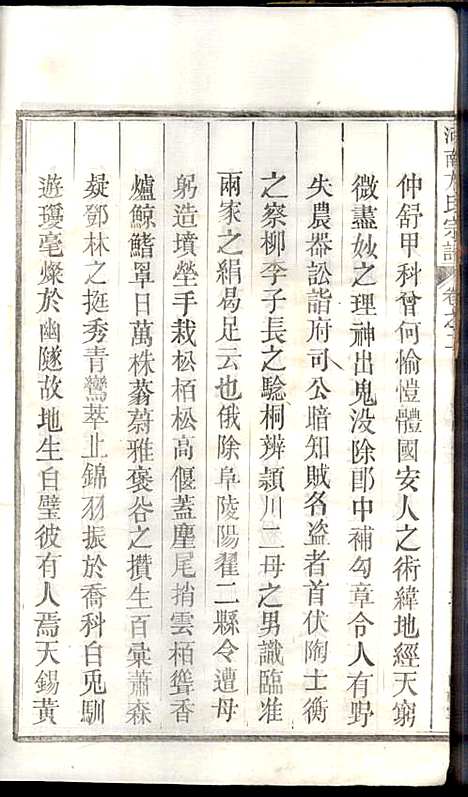 河南方氏宗譜 卷之二
仲舒甲科曾何愉愷體國安人之術緯地經天窮
微盡妙之理神出鬼没除郎中補勾章令人有野
失農器訟詣府可公暗知賊名盗者首伏陶士衡
之察柳李子長之驗桐辨頴川二母之男識臨淮
兩家之絹曷足云也俄除阜陵陽翟二縣令遭母
躬造墳塋手栽松栢松高偃蓋塵尾捎雲栢聳香
爐鯨鰭罩日萬株蓊蔚雅褒谷之攢生百彙蕭森
凝鄧林之挺秀青鸞萃止錦羽振於喬科白兎馴
遊瓊毫燦於幽隧故地生白璧彼有人焉天錫黄